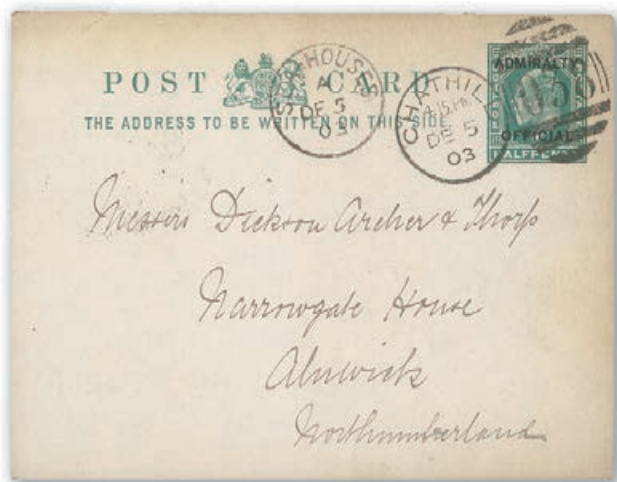 POST CARD
THE ADDRESS TO BE WRITTEN ON THIS SIDE.
HOUSES
A
DE 5
03
CHATHILL
4.15 PM
DE 5
03
ADMIRALTY
OFFICIAL
HALFPENNY
Messrs Dickson Archer & Thorp
Narrowgate House
Alnwick
Northumberland